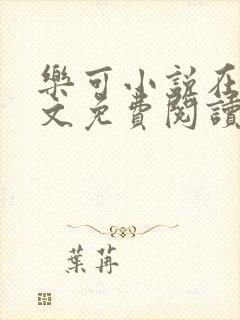 樂可小說在
文免費閱讀
葉苒